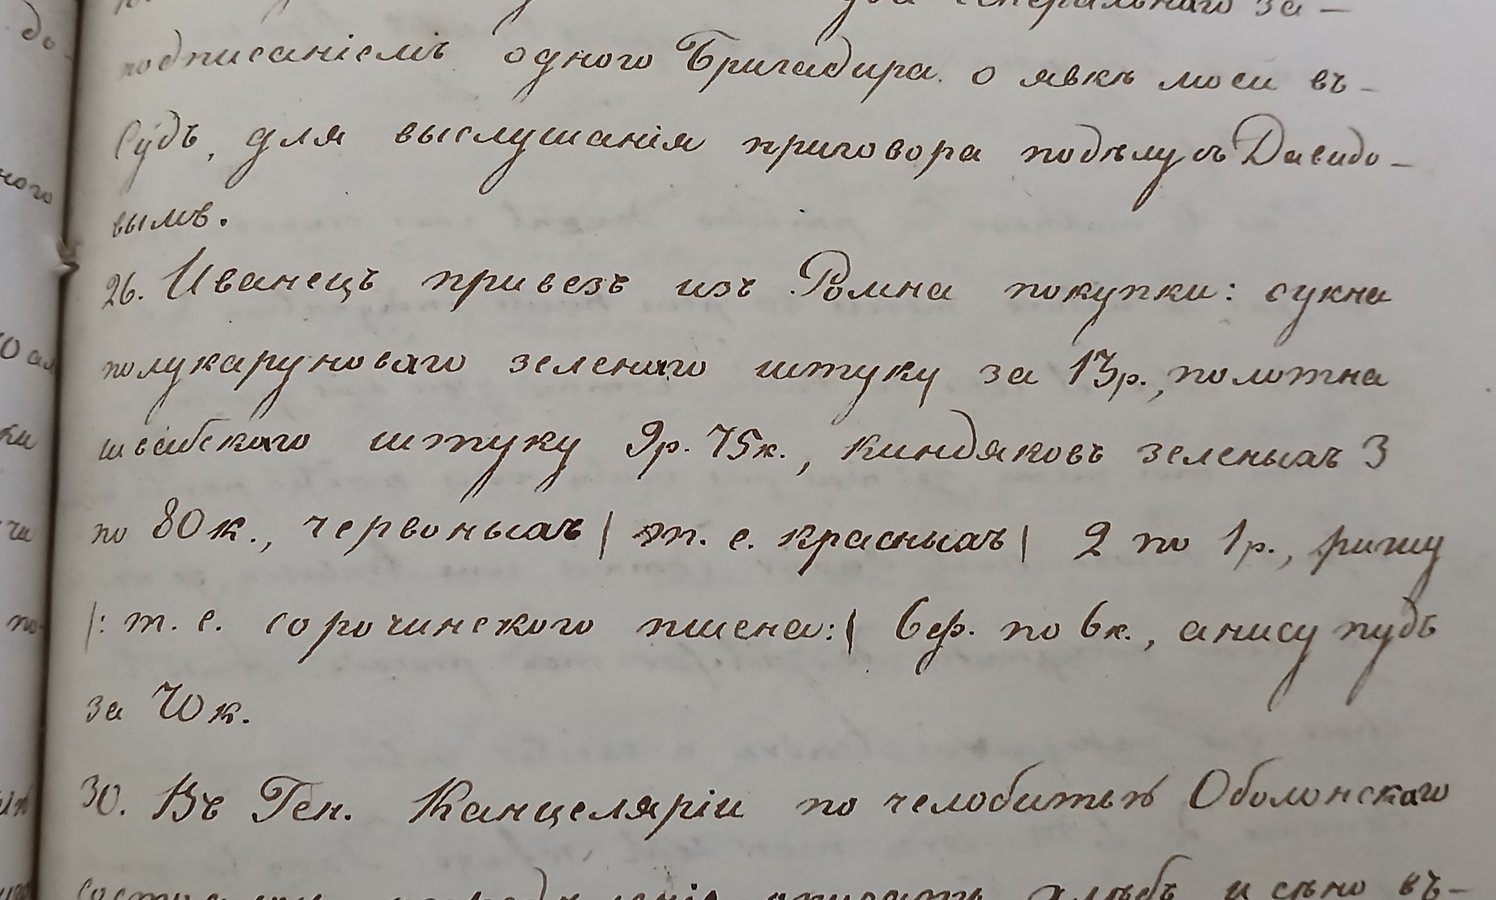 генеральнаго за-
подписаніемъ одного Бригадира о явкѣ моей въ-
Судъ, для выслушанія приговора подѣлу съ Давидо-
вымъ.
26. Иванецъ привезъ изъ Ромна покупки: сукна
полукаруноваго зеленаго штуку за 13р., полотна
швабскаго штуку 9р. 75к., киндяковъ зеленыхъ 3
по 80к., червоныхъ | т. е. красныхъ | 2 по 1р., рижу
|: т. е. сорочинского пшена :| 6ф. по 6к., анису пудъ
за 70к.
30. Въ Ген. Канцеляріи по челобитьѣ Оболонскаго
хлѣбъ и сѣно въ-